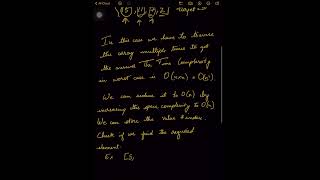 In this case we have to traverse
the array multiple times to get
the answer. The Time Complexity
in worst case is O(n×n) = O(n²).
We can reduce it to O(n) by
increasing the space complexity to O(n)
We can store the value & index.
Check if we find the required
element.
Ex [3,